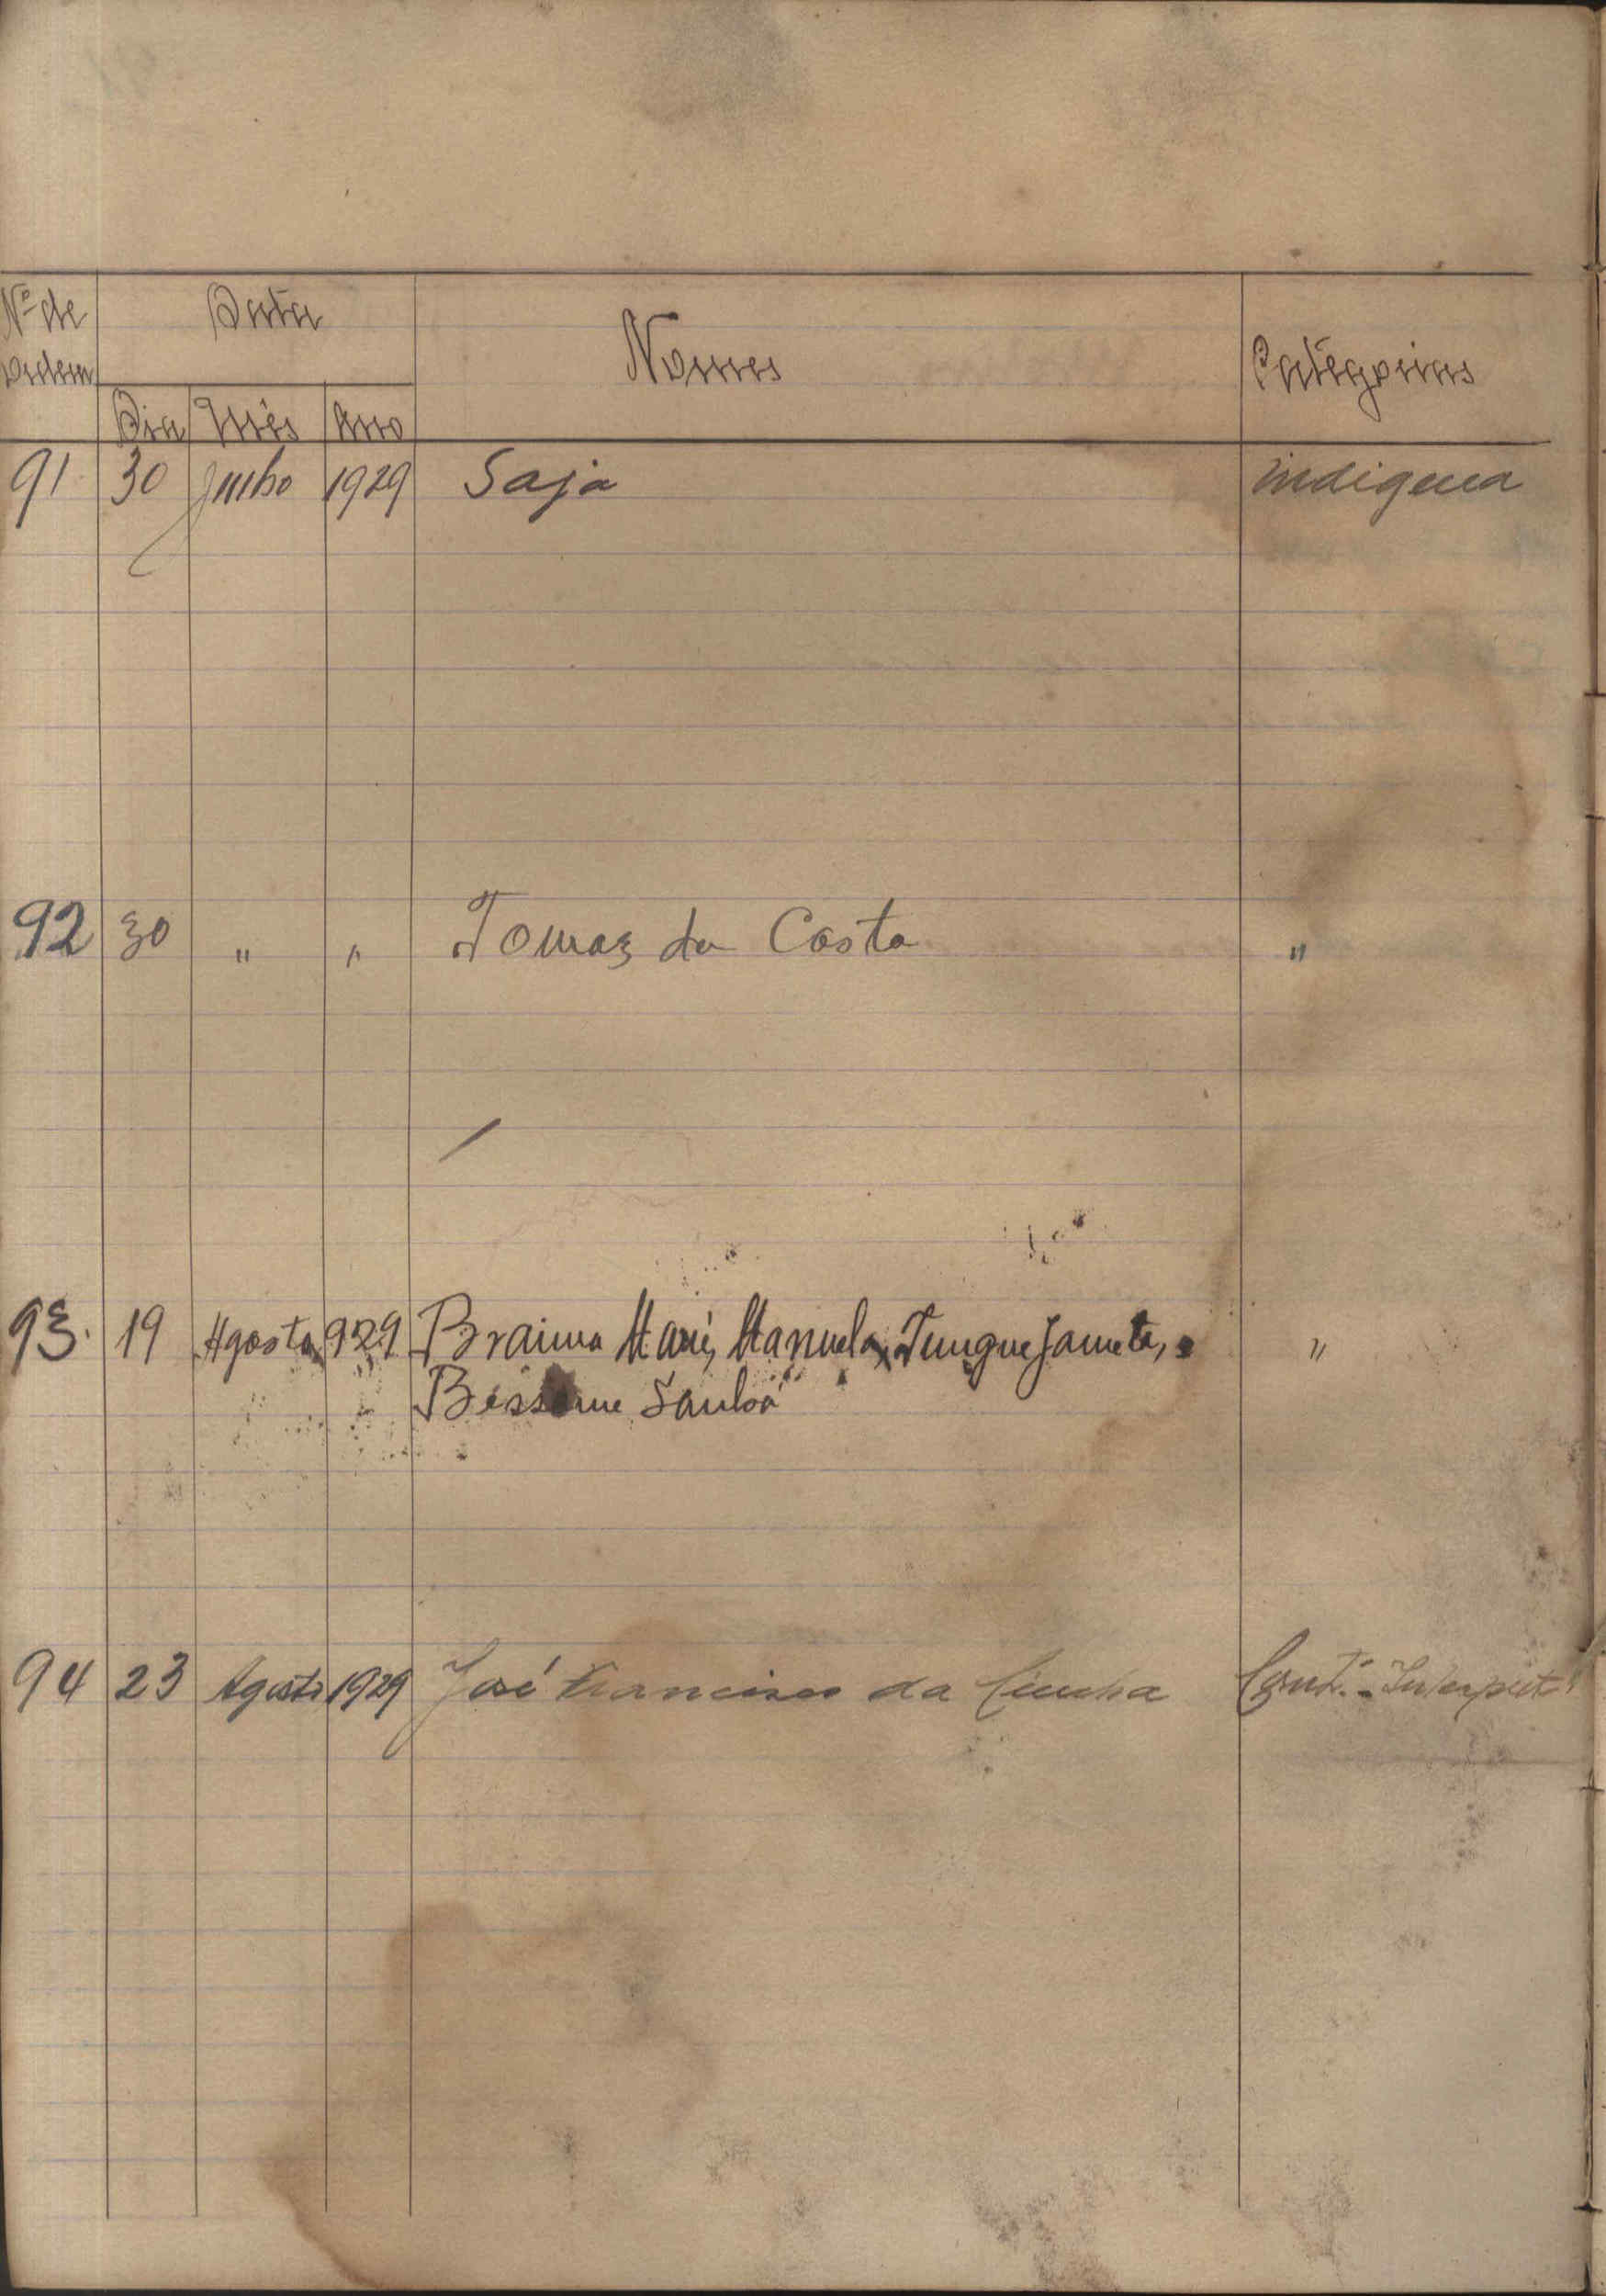 Nº de Data Nomes Categorias
ordem
Dia Mês Ano
91 30 Julho 1929 Saja indigena
92 30 " " Tomaz da Costa "
93. 19 Agosto 1929 Braima Mané, Manuel Tungue Jameta, e "
Sanhá
94 23 Agosto 1929 José Francisco da Cunha Contº.-Interpete